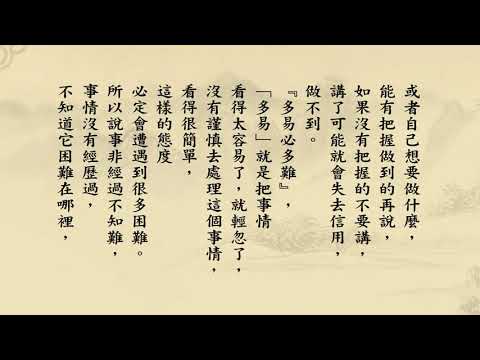 或者自己想要做什麼，
能有把握做到的再說，
如果沒有把握的不要講，
講了可能就會失去信用，
做不到。
『多易必多難』，
「多易」就是把事情
看得太容易了，就輕忽了，
沒有謹慎去處理這個事情，
看得很簡單，
這樣的態度
必定會遭遇到很多困難。
所以說事非經過不知難，
事情沒有經歷過，
不知道它困難在哪裡，